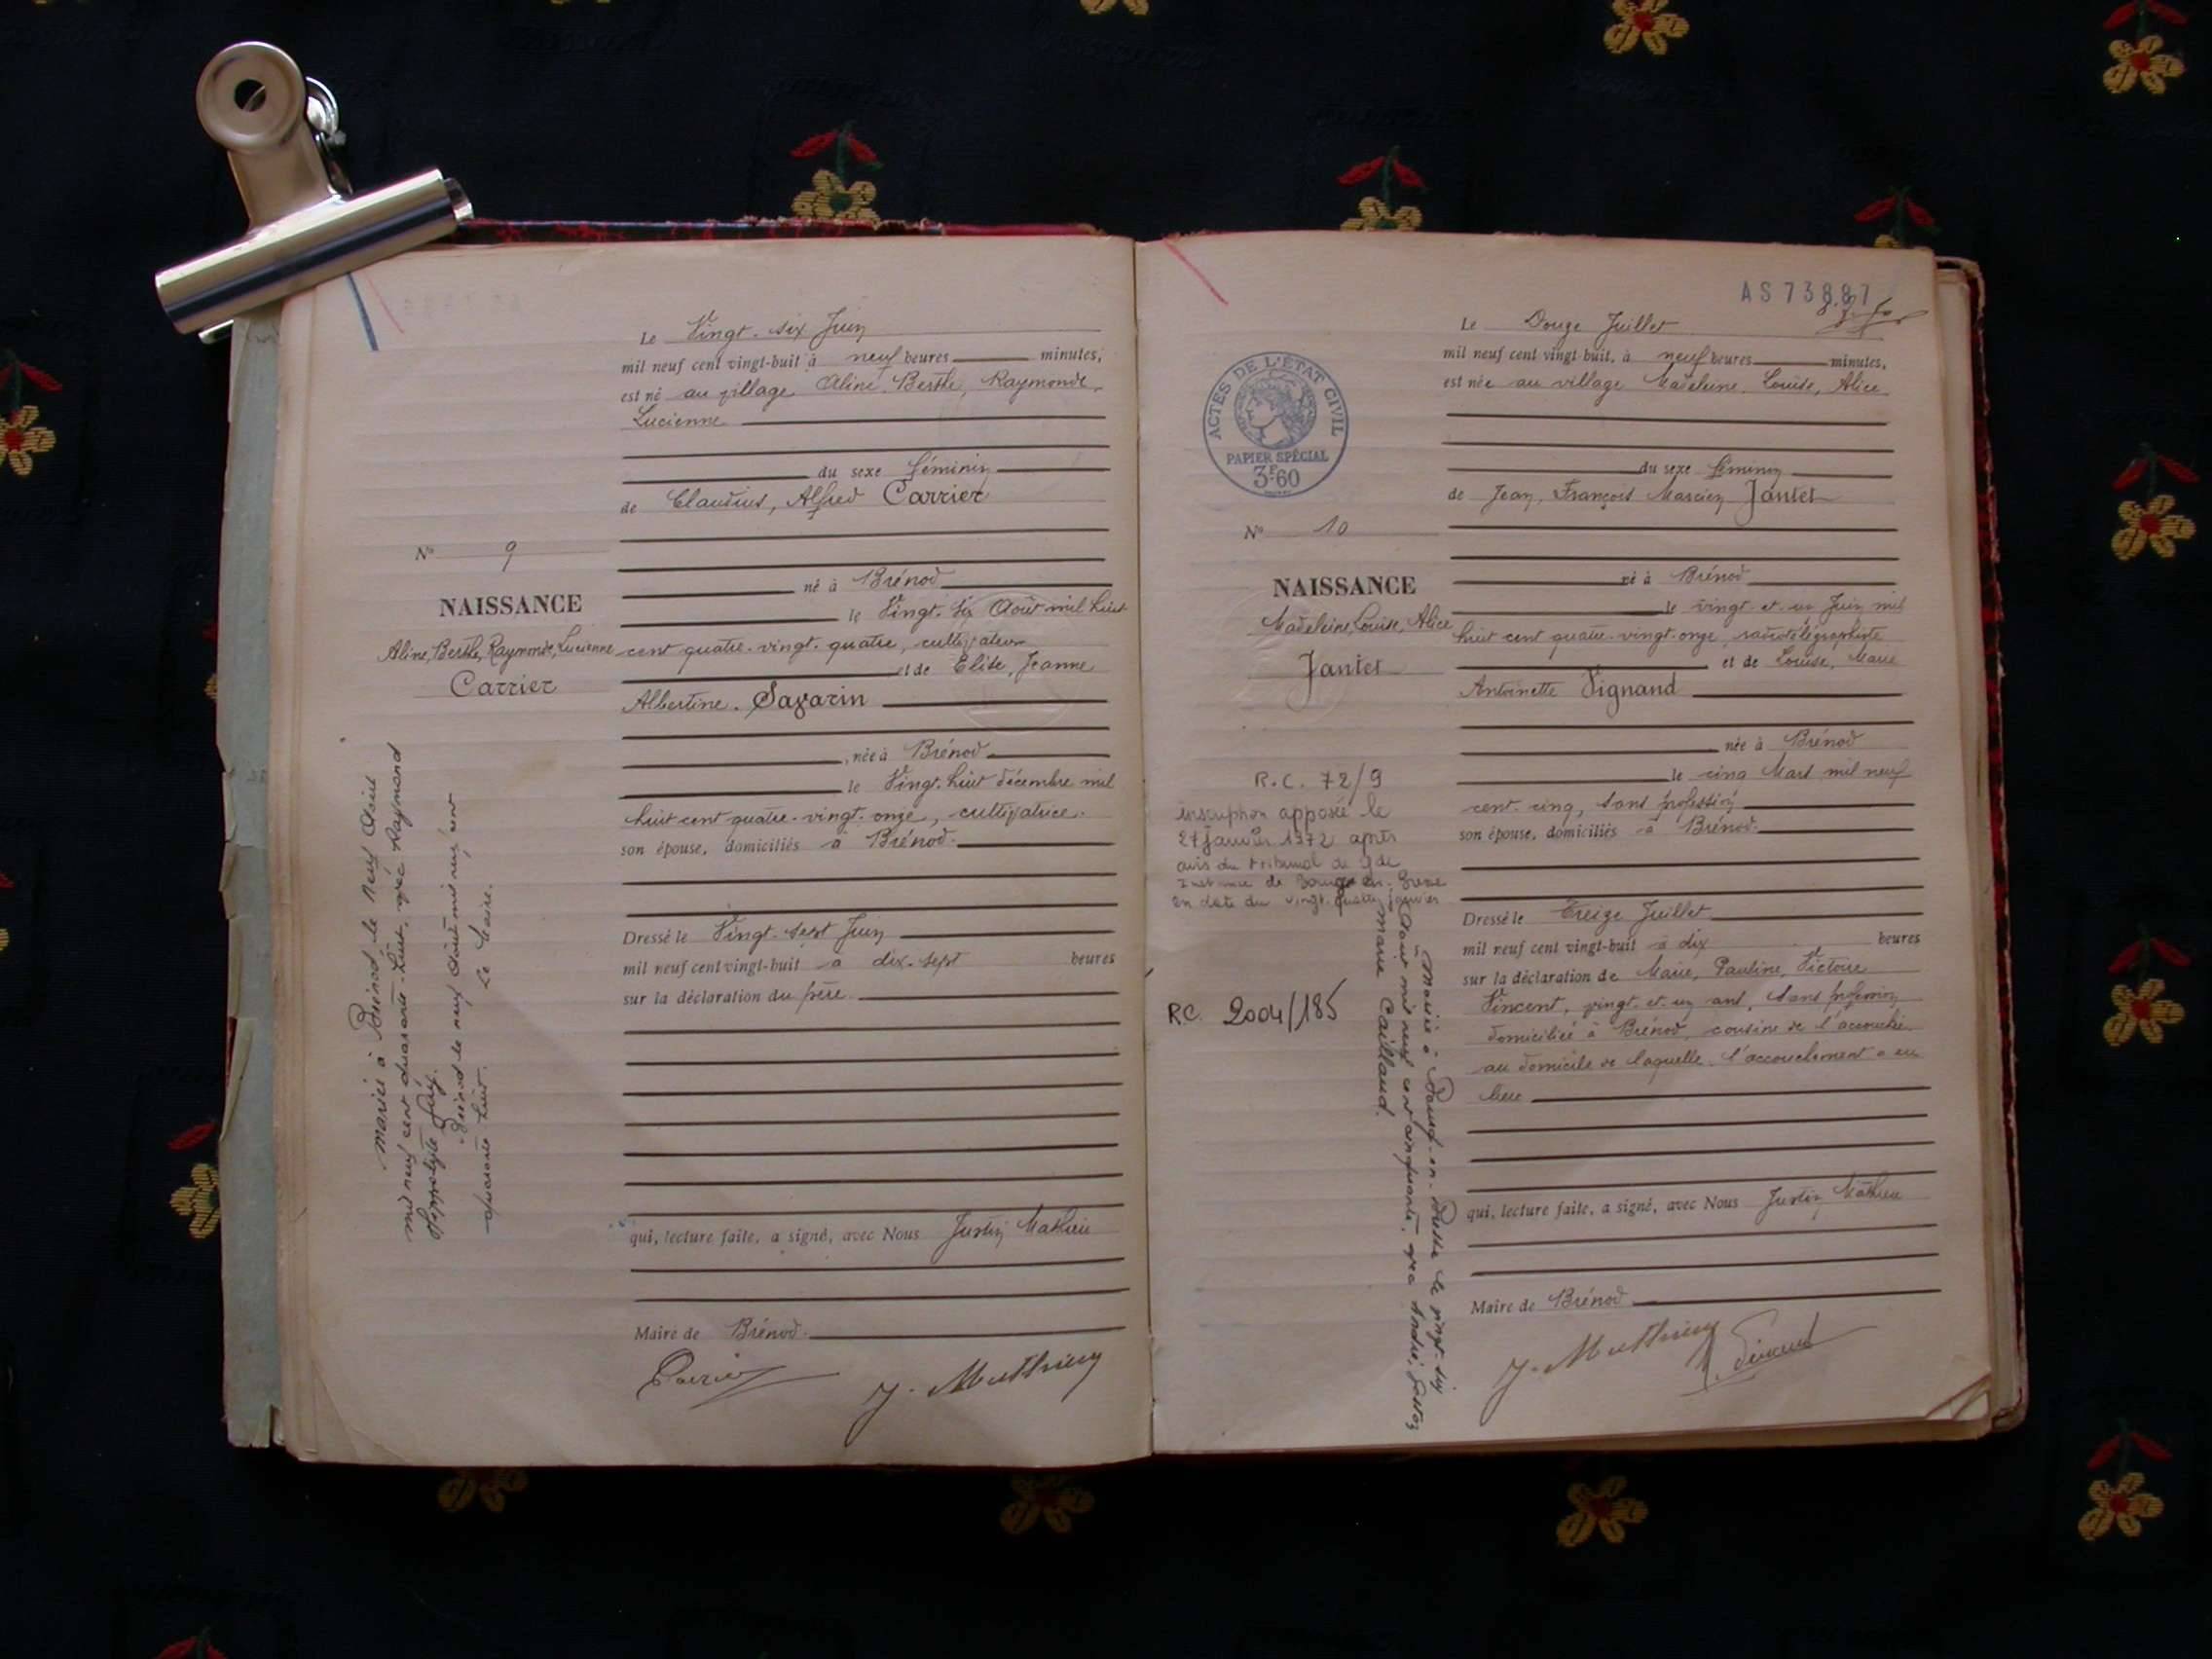 Le Vingt-six Juin
mil neuf cent vingt-huit à neuf heures minutes,
est né au village Aline, Berthe, Raymonde,
Lucienne
du sexe féminin
de Claudius, Alfred Carrier
né à Brénod
le Vingt-six Août mil huit
cent quatre-vingt-quatre, cultivateur
et de Elise, Jeanne
Albertine Savarin
, née à Brénod
le Vingt-huit décembre mil
huit cent quatre-vingt-onze, cultivatrice.
son épouse, domiciliés à Brénod.
Dressé le Vingt-sept Juin
mil neuf cent vingt-huit à dix-sept heures
sur la déclaration du père.
qui, lecture faite, a signé, avec Nous Justin Mathieu
Maire de Brénod.
Carrier J. Mathieu
N° 9
NAISSANCE
Aline, Berthe, Raymonde, Lucienne
Carrier
Mariée à Brénod le neuf Août
mil neuf cent quarante-huit, avec Raymond
Hippolyte
Brénod le neuf Août mil neuf cent
quarante huit. Le Maire.
AS 73887
Le Douze Juillet
mil neuf cent vingt-huit, à neuf heures minutes,
est née au village Madeleine, Louise, Alice
du sexe féminin
de Jean, François Marcien Jantet
né à Brénod
le vingt-et-un Juin mil
huit cent quatre-vingt-onze, radiotélégraphiste
et de Louise, Marie
Antoinette Vignand
née à Brénod
le cinq Mars mil neuf
cent cinq, sans profession
son épouse, domiciliés à Brénod.
Dressé le Treize Juillet
mil neuf cent vingt-huit à dix heures
sur la déclaration de Marie, Pauline, Victoire
Vincent, vingt-et-un ans, sans profession
domiciliée à Brénod, cousine de l'accouchée
au domicile de laquelle l'accouchement a eu
lieu
qui, lecture faite, a signé, avec Nous Justin Mathieu
Maire de Brénod
J. Mathieu Vincent
ACTES DE L'ÉTAT CIVIL
PAPIER SPÉCIAL
3F60
N° 10
NAISSANCE
Madeleine, Louise, Alice
Jantet
R.C. 72/9
inscription apposée le
27 janvier 1972 après
avis du tribunal de gde
Instance de Bourg-en-Bresse
en date du vingt-quatre janvier
RC 2004/185
Mariée à Bourg-en-Bresse le vingt-six
Août mil neuf cent cinquante, avec André, Gaston
Marie Caillaud.